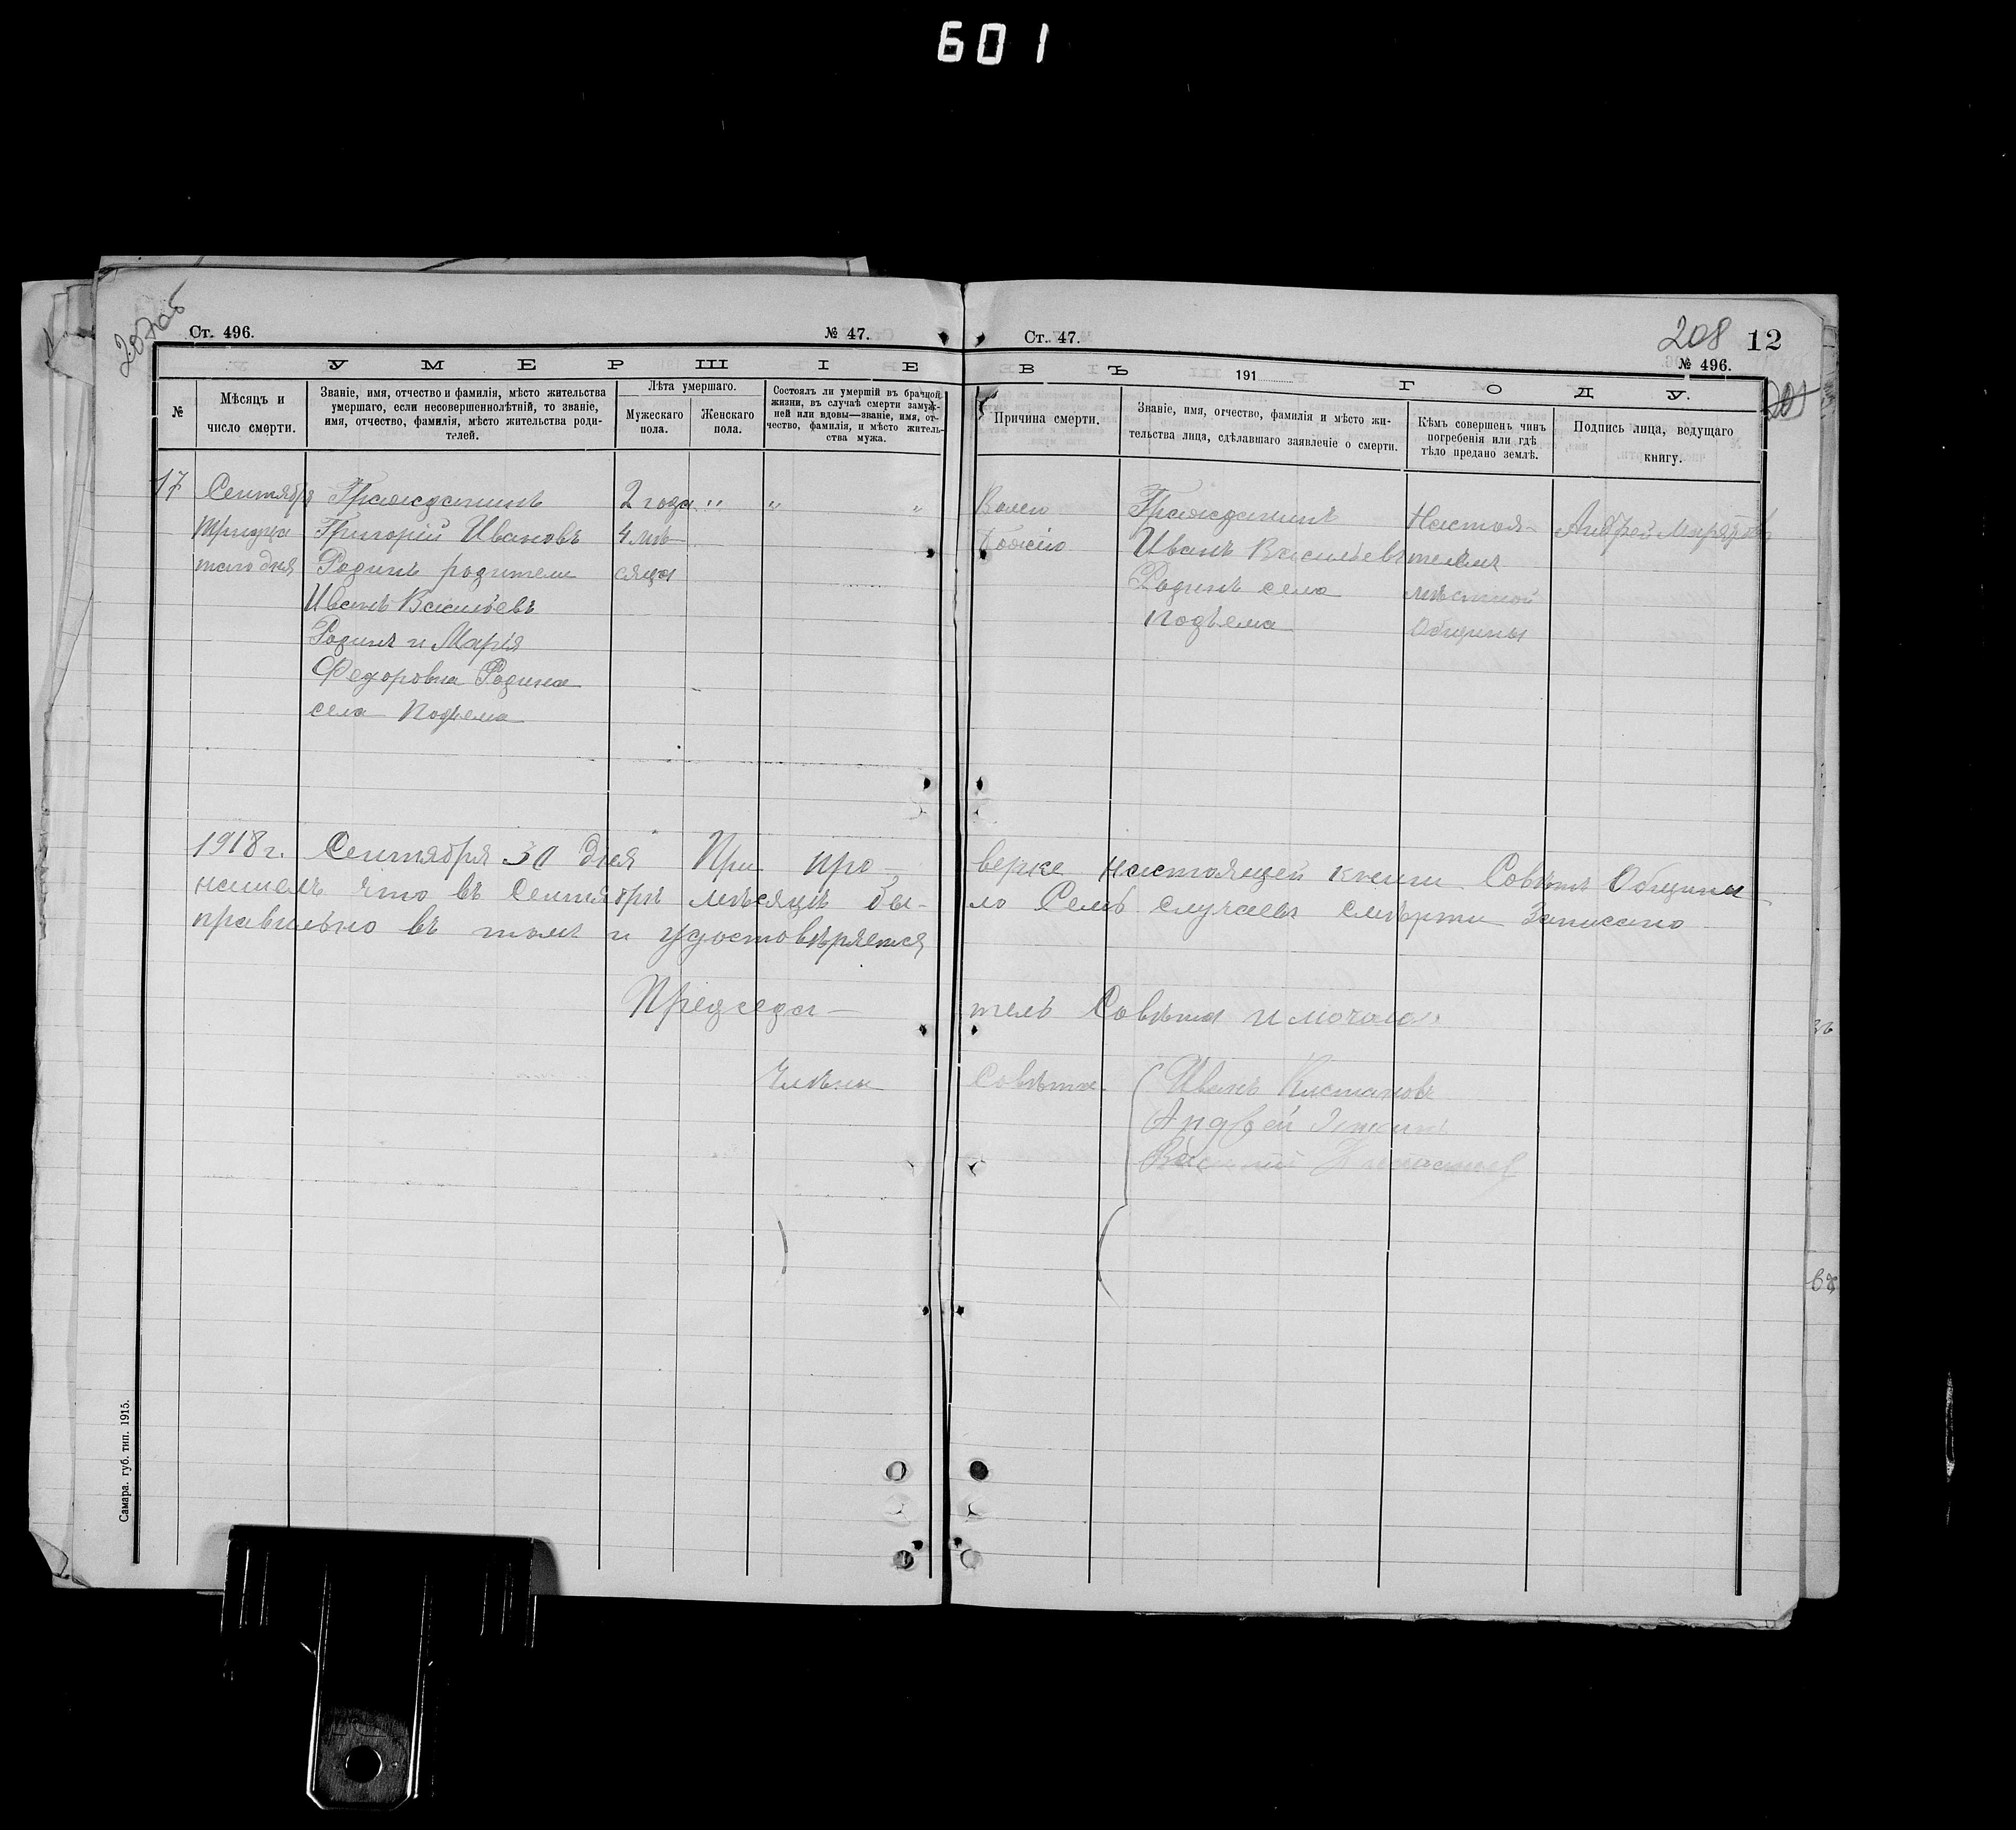 601
207об
Ст. 496.
№ 47.
У М Е Р Ш І Е
№
Мѣсяцъ и
число смерти.
Званіе, имя, отчество и фамилія, мѣсто жительства
умершаго, если несовершеннолѣтній, то званіе,
имя, отчество, фамилія, мѣсто жительства роди-
телей.
Лѣта умершаго.
Мужескаго
пола.
Женскаго
пола.
Состоялъ ли умершій въ брачной
жизни, въ случаѣ смерти замуж-
ней или вдовы—званіе, имя, от-
чество, фамилія, и мѣсто житель-
ства мужа.
17
Сентября
тридца
таго дня
Гражданинъ
Григорій Ивановъ
Родинъ родители
Иванъ Васильевъ
Родинъ и Марія
Федоровна Родина
села Подъема
2 года
4 мѣ-
сяца
"
"
"
Ст. 47.
208
12
№ 496.
В Ъ 191 Г О Д У.
Причина смерти.
Званіе, имя, отчество, фамилія и мѣсто жи-
тельства лица, сдѣлавшаго заявленіе о смерти.
Кѣмъ совершенъ чинъ
погребенія или гдѣ
тѣло предано землѣ.
Подпись лица, ведущаго
книгу.
Волею
Божію
Гражданинъ
Иванъ Васильевъ
Родинъ села
Подъема
Настоя-
телемъ
мѣстной
Общины
Андрей
1918 г. Сентября 30 дня При про-верке настоящей книги Совѣтъ Общины
нашелъ что въ Сентябрѣ мѣсяцѣ бы-ло Семь случаевъ смѣрти Записано
правильно въ томъ и удостовѣряется
Председа-тель Совѣта
Члѣны Совѣта
Иванъ Кистановъ
Андрей
Василій
Самара. губ. тип. 1915.